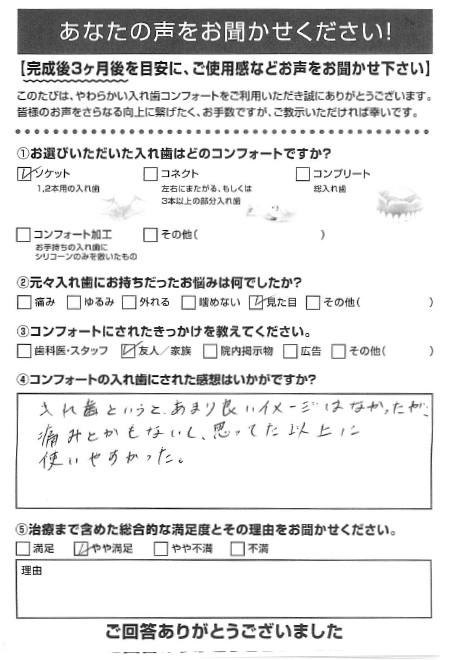 あなたの声をお聞かせください!
【完成後3ヶ月後を目安に、ご使用感などお声をお聞かせ下さい】
このたびは、やわらかい入れ歯コンフォートをご利用いただき誠にありがとうございます。
皆様のお声をさらなる向上に繋げたく、お手数ですが、ご教示いただければ幸いです。
①お選びいただいた入れ歯はどのコンフォートですか?
ソケット
1,2本用の入れ歯
コネクト
左右にまたがる、もしくは
3本以上の部分入れ歯
コンプリート
総入れ歯
コンフォート加工
お手持ちの入れ歯に
シリコーンのみを敷いたもの
その他( )
②元々入れ歯にお持ちだったお悩みは何でしたか?
痛み ゆるみ 外れる 噛めない 見た目 その他( )
③コンフォートにされたきっかけを教えてください。
歯科医・スタッフ 友人／家族 院内掲示物 広告 その他( )
④コンフォートの入れ歯にされた感想はいかがですか?
入れ歯というと、あまり良いイメージはなかったが、
痛みとかもないし、思ってた以上に
使いやすかった。
⑤治療まで含めた総合的な満足度とその理由をお聞かせください。
満足 やや満足 やや不満 不満
理由
ご回答ありがとうございました